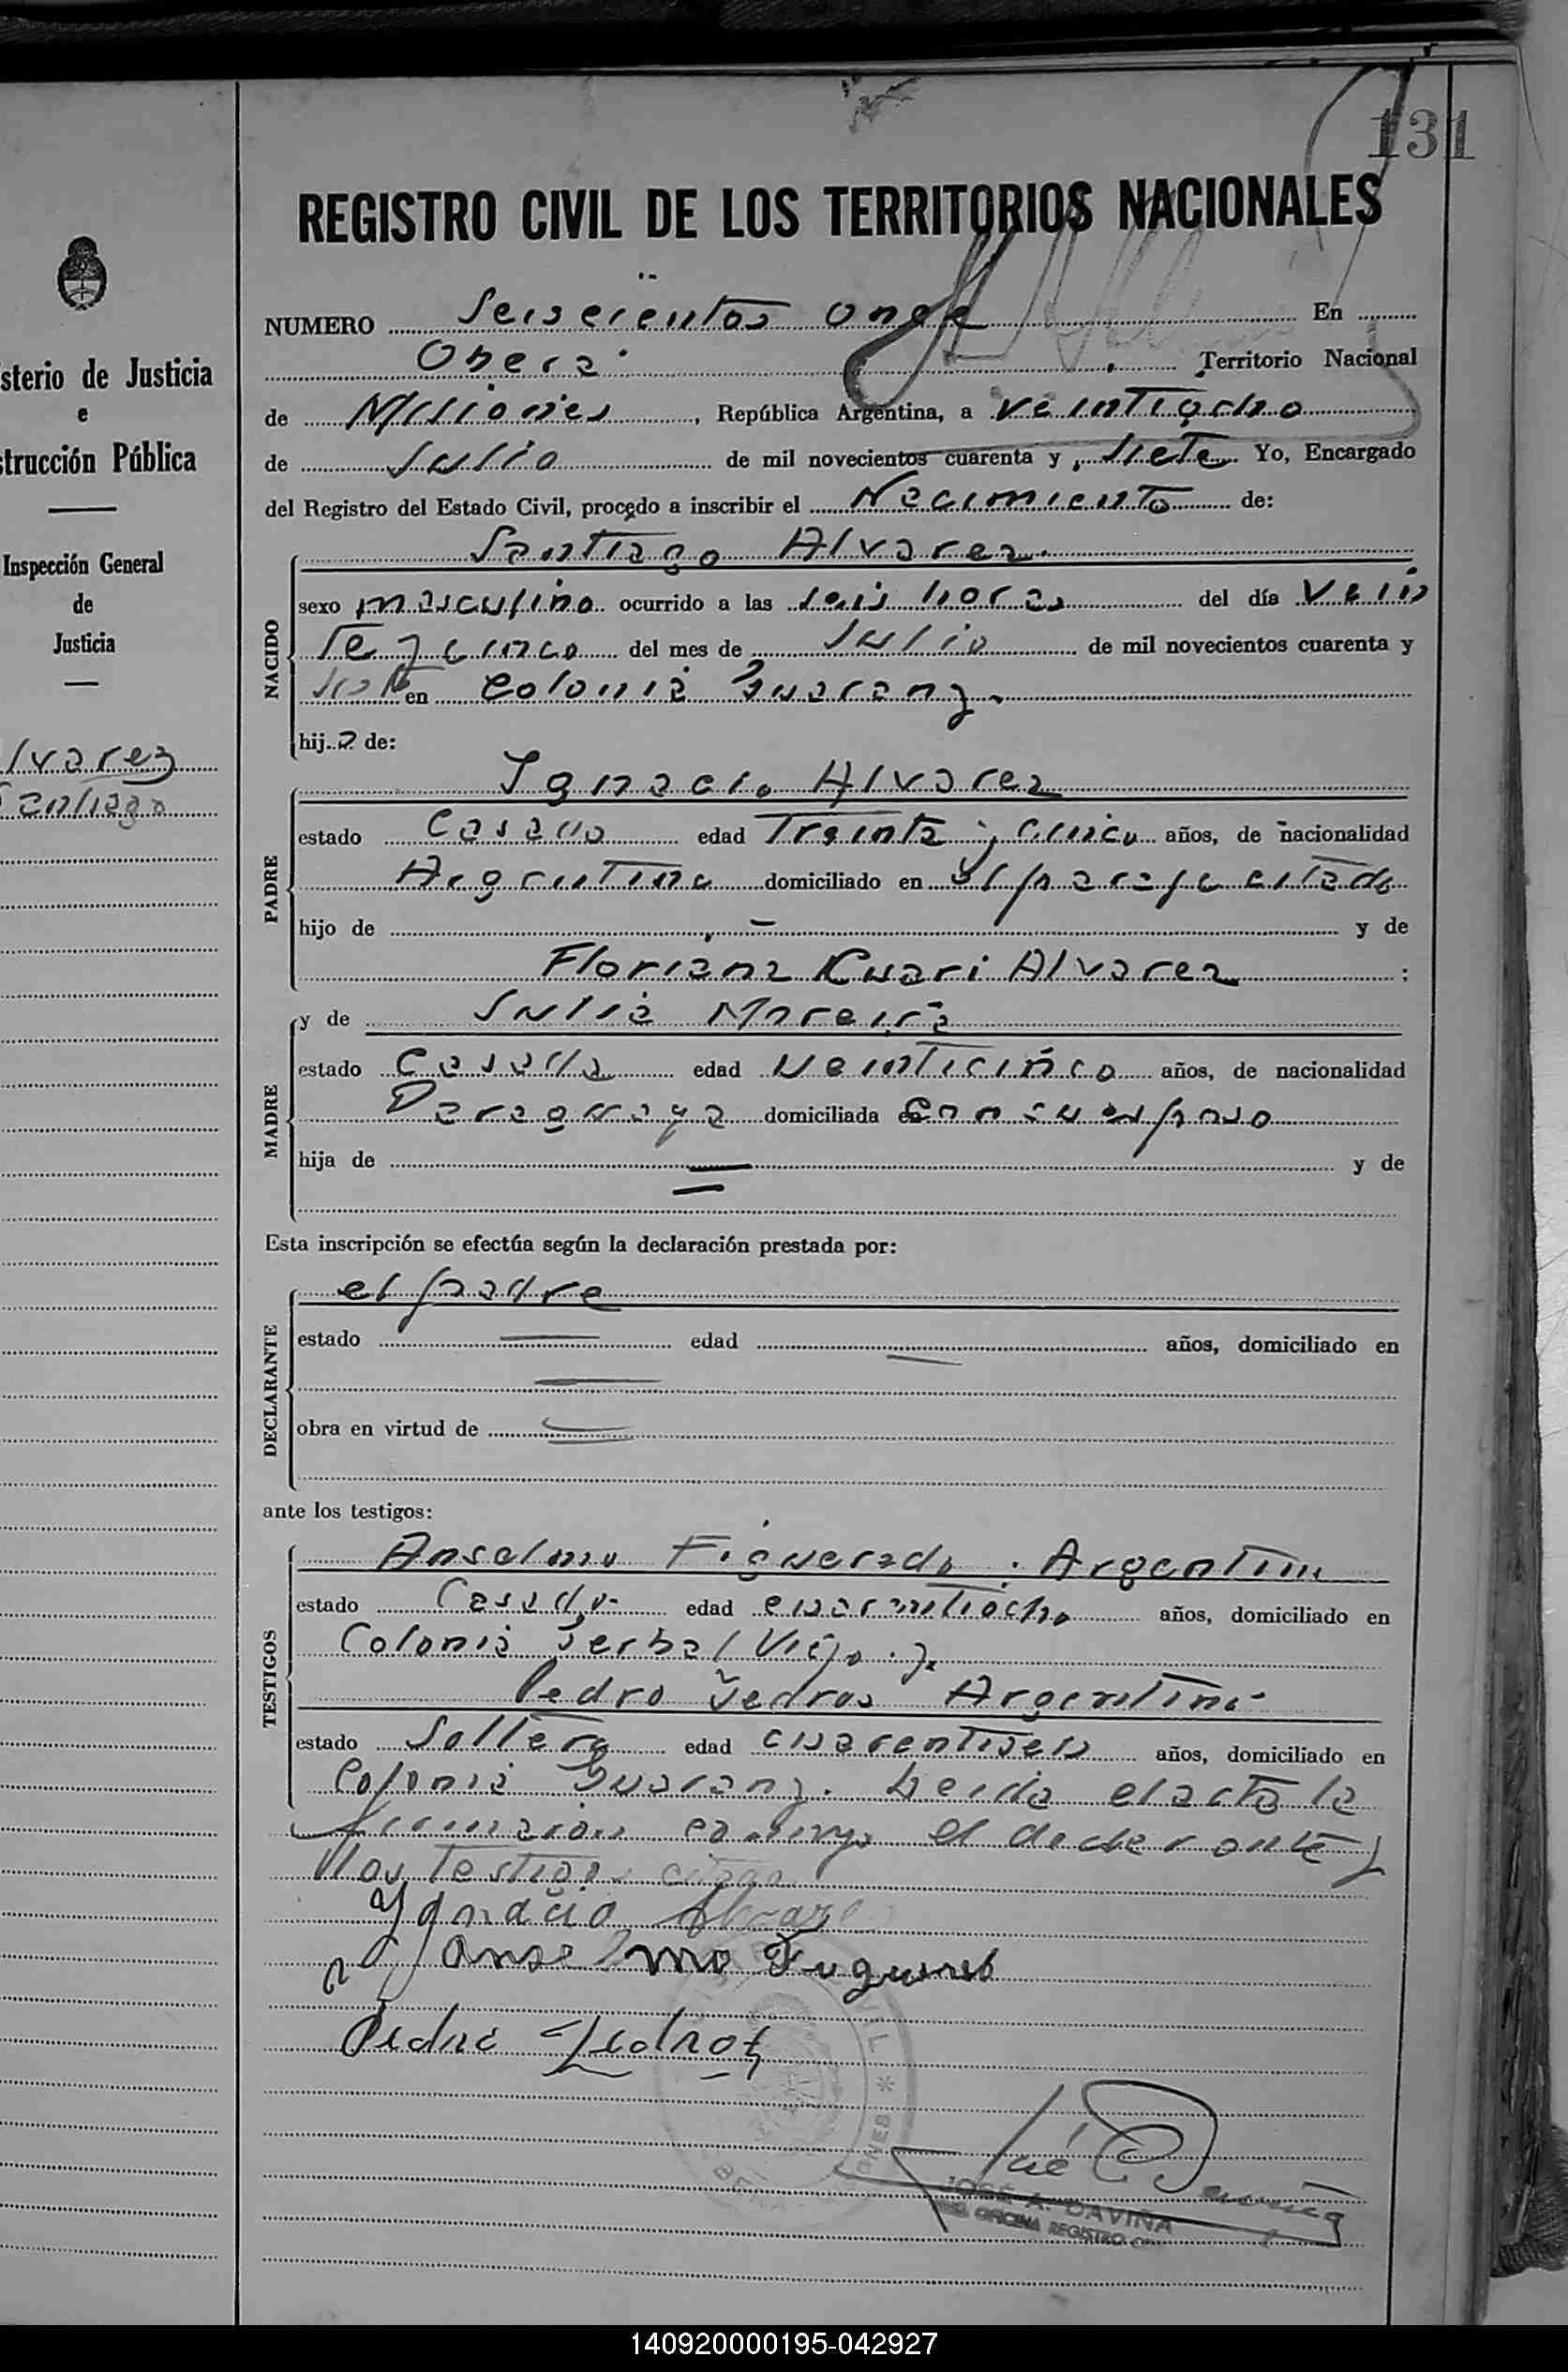 131
REGISTRO CIVIL DE LOS TERRITORIOS NACIONALES
NUMERO Seiscientos once En
Oberá Territorio Nacional
de Misiones, República Argentina, a veintiocho
de Julio de mil novecientos cuarenta y siete Yo, Encargado
del Registro del Estado Civil, procedo a inscribir el Nacimiento de:
Santiago Alvarez
NACIDO
sexo masculino ocurrido a las seis horas del día Vein
te y cinco del mes de Julio de mil novecientos cuarenta y
siete en Colonia Guarany.
hijo de:
Ignacio Alvarez
PADRE
estado Casado edad Treinta y cinco años, de nacionalidad
Argentina domiciliado en el paraje citado
hijo de — y de
Floriana Kuari Alvarez ;
MADRE
y de Julia Moreira
estado Casada edad Veinticinco años, de nacionalidad
Paraguaya domiciliada con su esposo
hija de — y de
Esta inscripción se efectúa según la declaración prestada por:
DECLARANTE
el padre
estado — edad — años, domiciliado en
obra en virtud de
ante los testigos:
TESTIGOS
Anselmo Figueredo. Argentino
estado Casado edad cuarentiocho años, domiciliado en
Colonia Yerbal Viejo. y.
Pedro Yedros Argentino
estado Soltero edad cuarentiseis años, domiciliado en
Colonia Guarany. Leida el acta la
firmaron conmigo el declarante y
los testigos
Ygnacio Alvarez
Anselmo
Pedro
José A. Daviña
JOSÉ A. DAVIÑA
OFICINA REGISTRO
sterio de Justicia
e
strucción Pública
Inspección General
de
Justicia
lvarez
Santiago
140920000195-042927